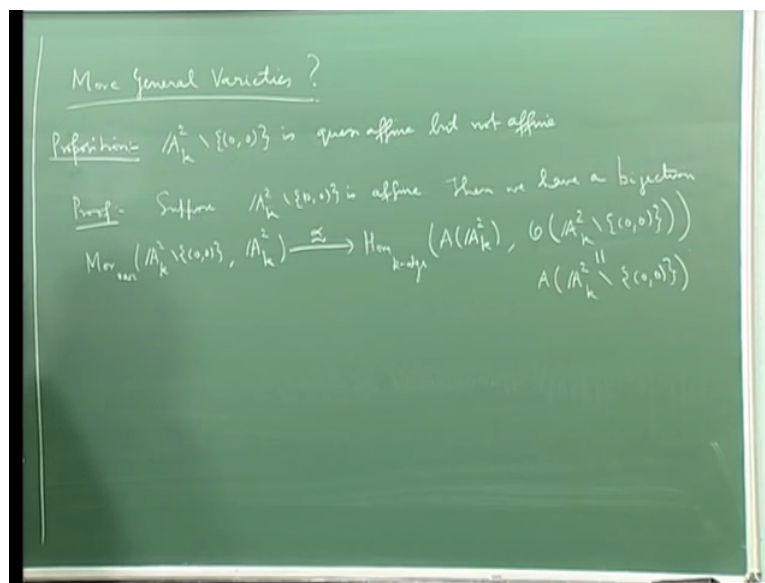 More General Varieties ?
Proposition:- 𝔸²ₖ \ {(0,0)} is quasi affine but not affine
Proof:- Suppose 𝔸²ₖ \ {(0,0)} is affine Then we have a bijection
Mor_var(𝔸²ₖ \ {(0,0)}, 𝔸²ₖ) —≃→ Hom_k-algs(A(𝔸²ₖ), O(𝔸²ₖ \ {(0,0)}))
||
A(𝔸²ₖ \ {(0,0)})